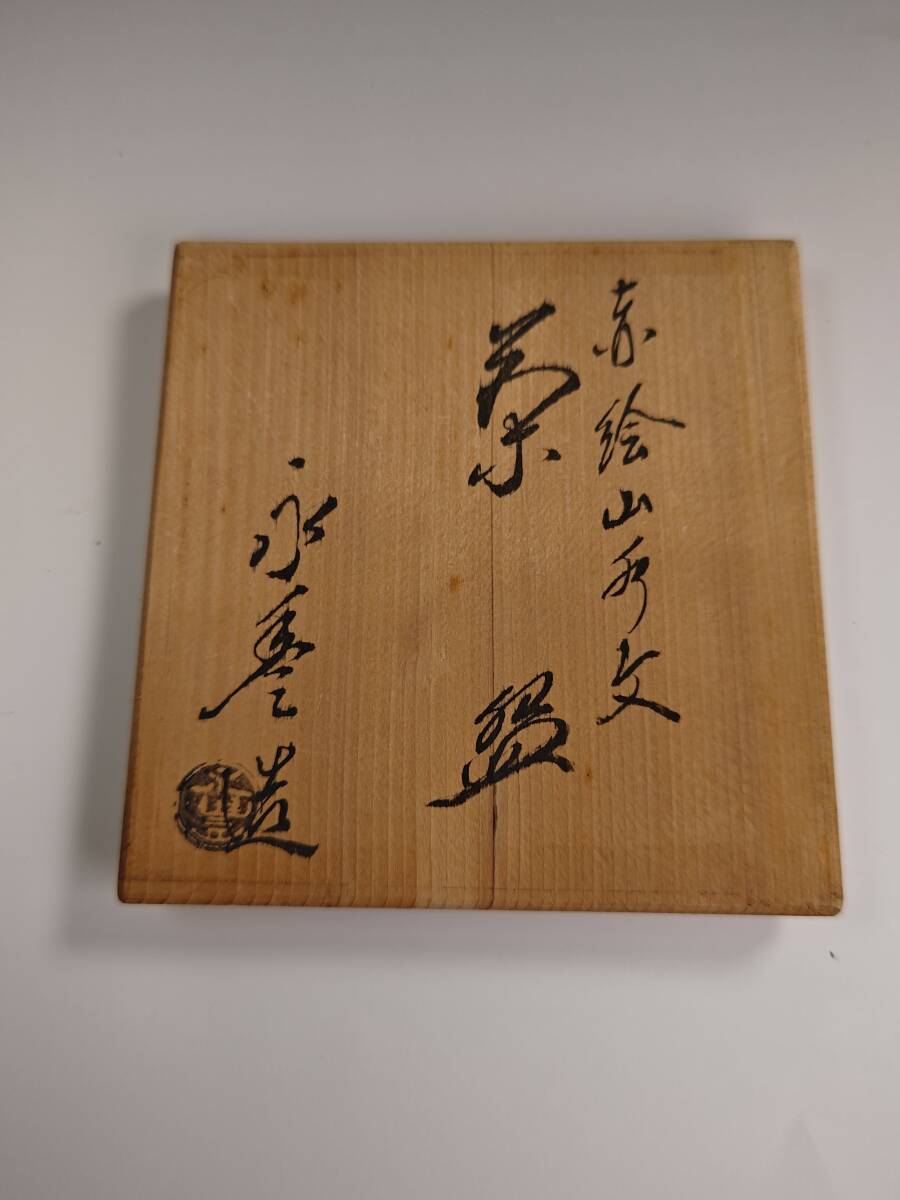 赤絵山水文
茶盌
永 造